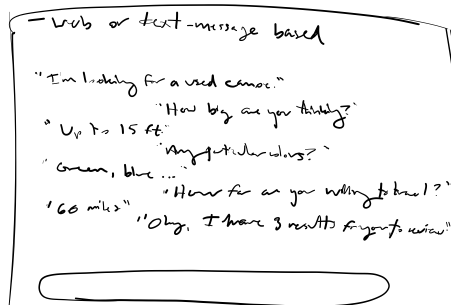 - web or text-message based
"I'm looking for a used canoe."
"How big are you thinking?"
"Up to 15 ft."
"Any particular colors?"
"Green, blue ..."
"How far are you willing to travel?"
"60 miles"
"Okay, I have 3 results for you to review"